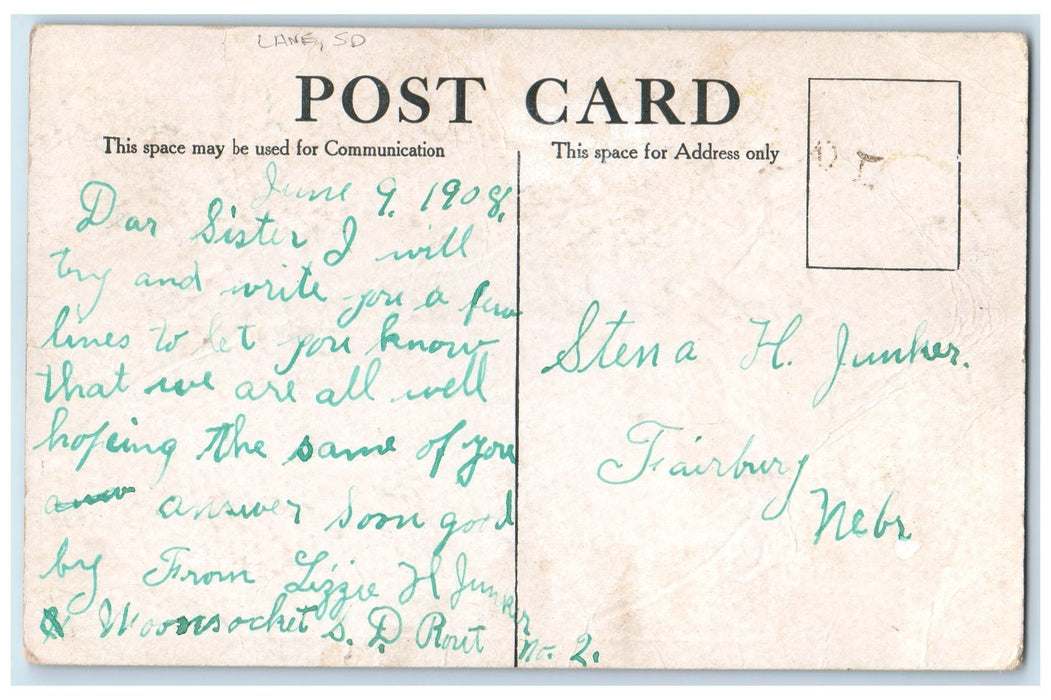 LANE, SD
POST CARD
This space may be used for Communication
This space for Address only
June 9, 1908.
Dear Sister I will
try and write you a few
lines to let you know
that we are all well
hoping the same of you
answer soon good
by From Lizzie H Junker
Woonsocket S. D Rout no. 2.
Stena H. Junker.
Fairbury
Nebr